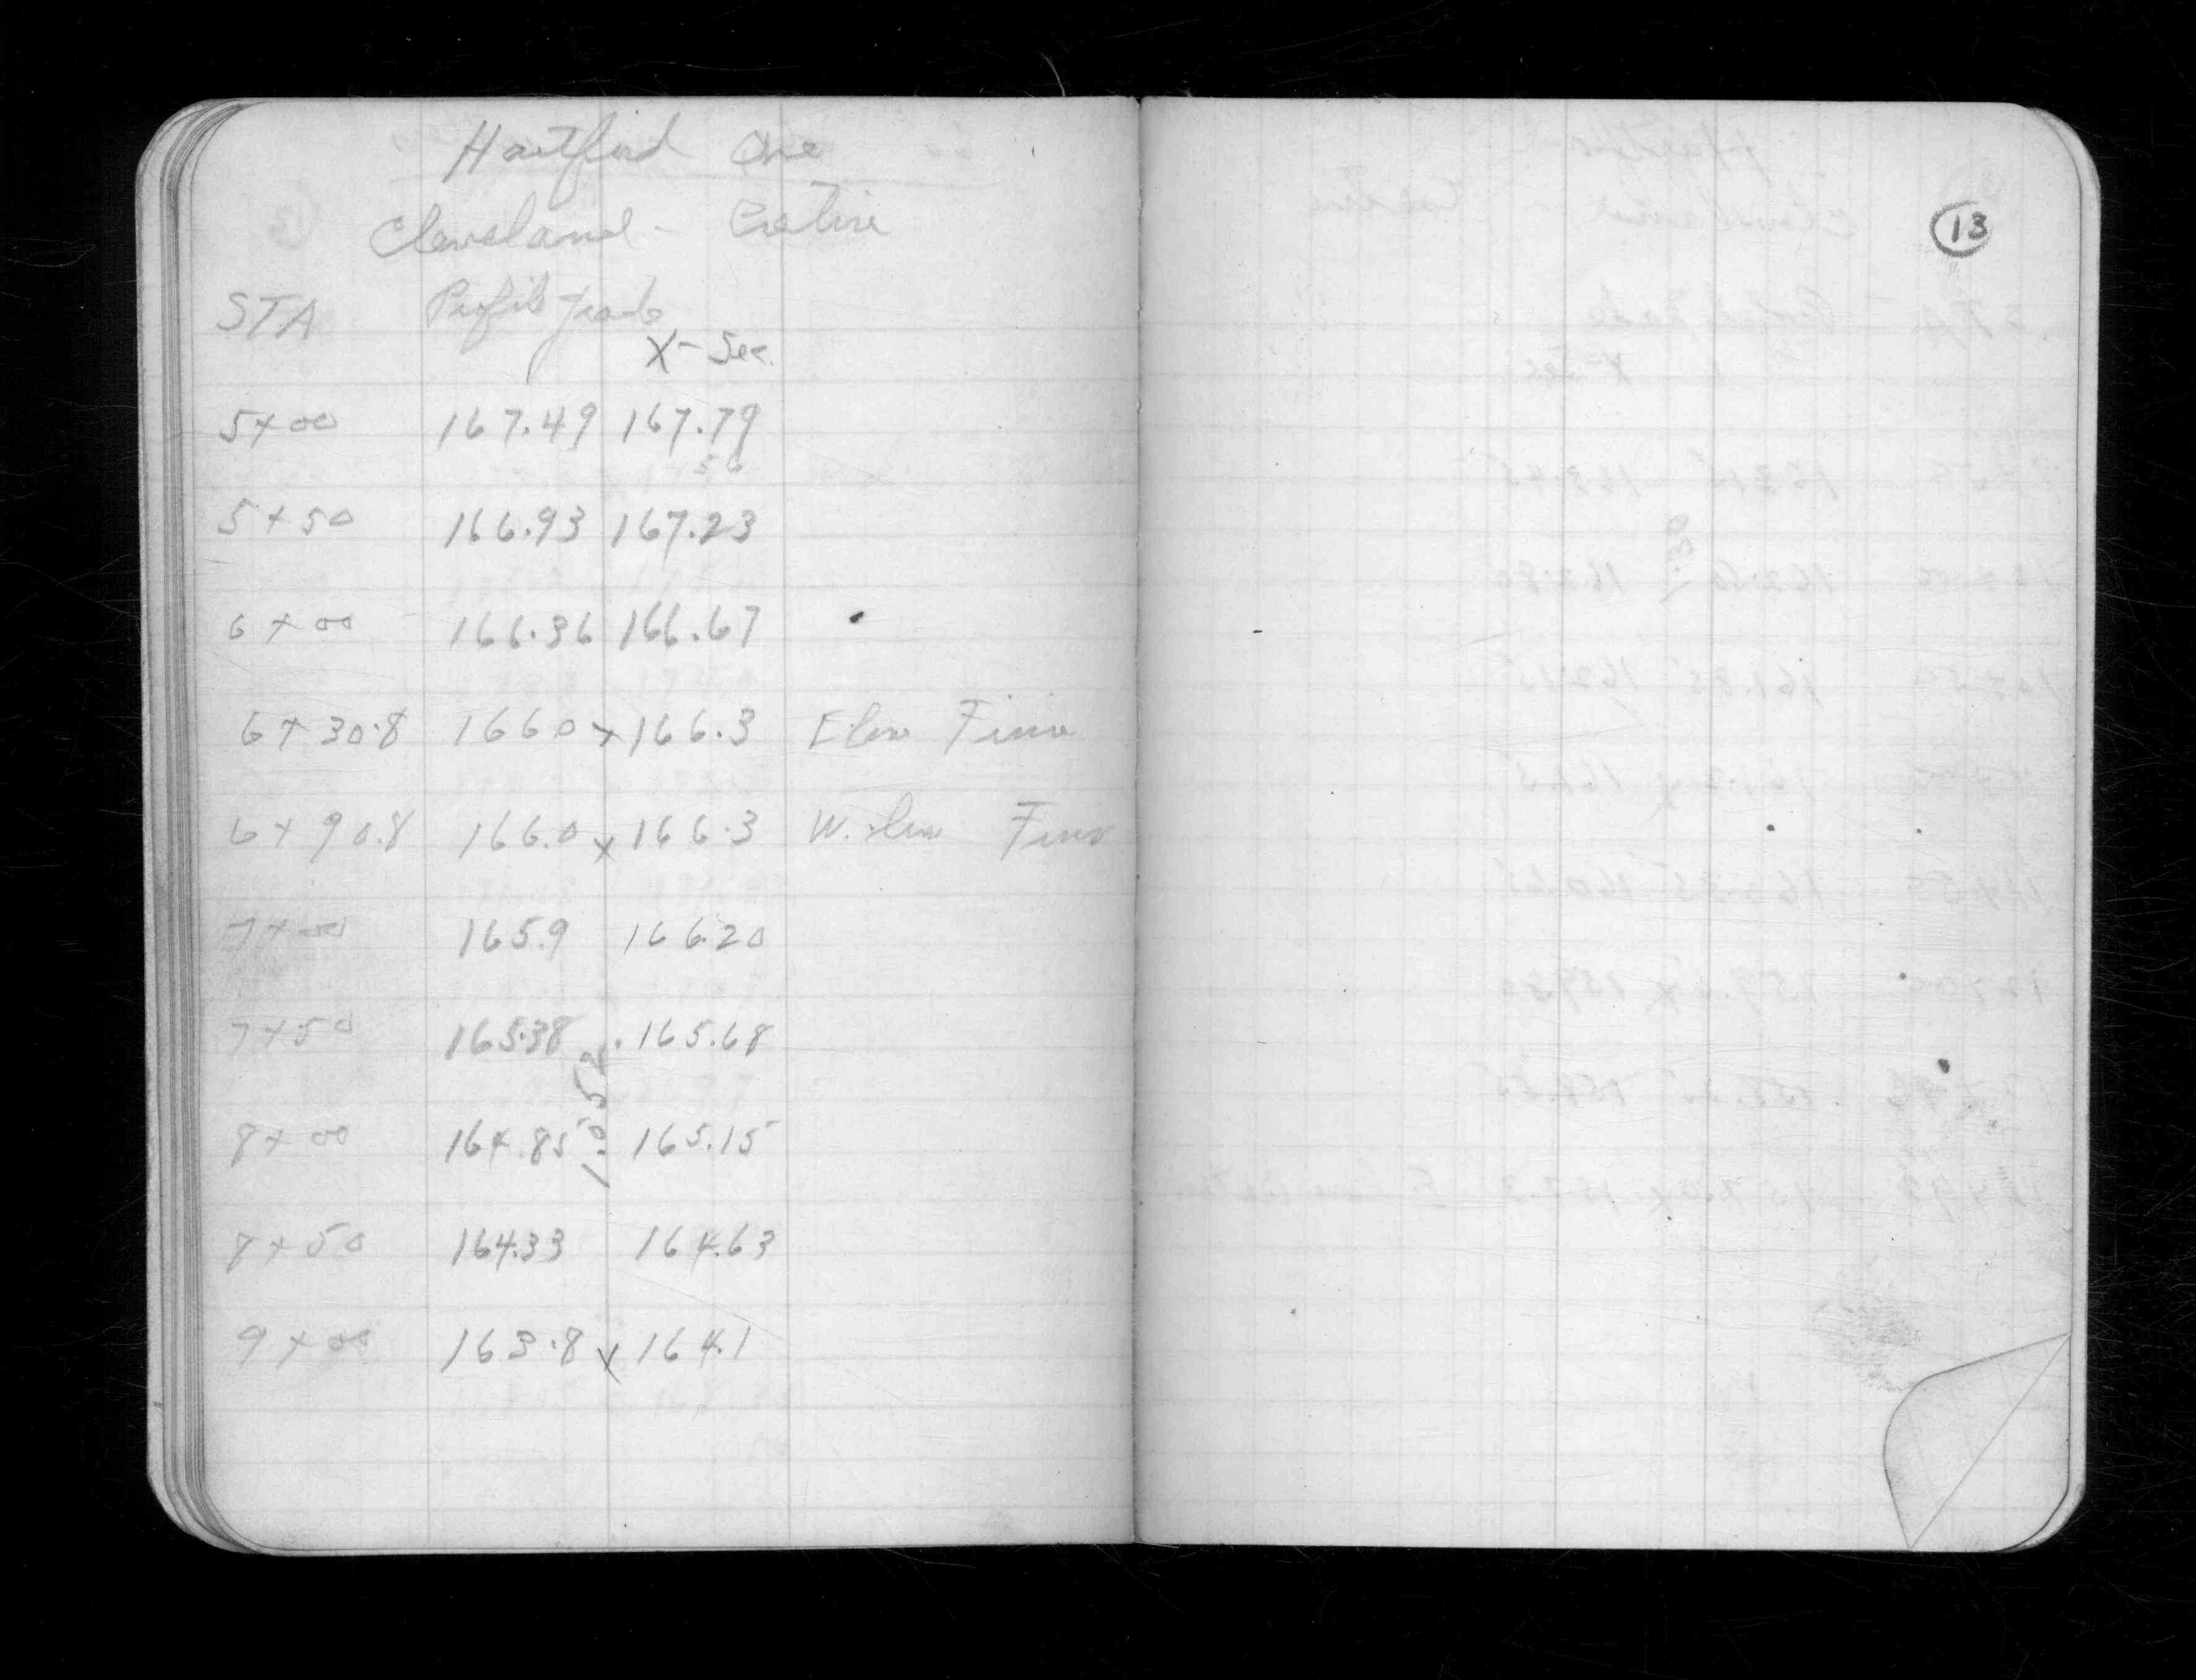 Hartford Ave
Cleveland - Erative
STA Profile grade
X-Sec.
5+00 167.49 167.79
56
5+50 166.93 167.23
6+00 166.36 166.67
6+30.8 166.0 x 166.3 E line
6+90.8 166.0 x 166.3 W. line
7+00 165.9 166.20
7+50 165.38 165.68
1.052
8+00 164.85 165.15
8+50 164.33 164.63
9+00 163.8 x 164.1
13